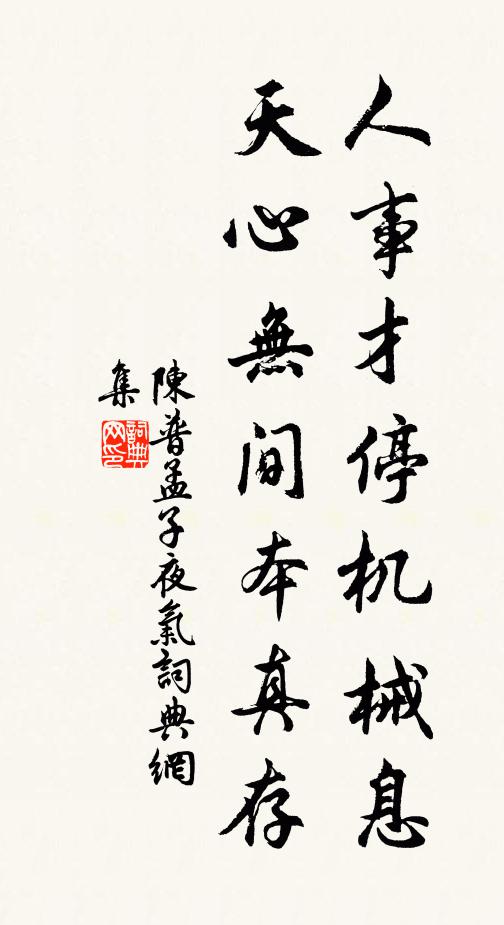 人事才停机械息
天心無间本真存
陳普孟子夜氣詞典網
集
詞典网印